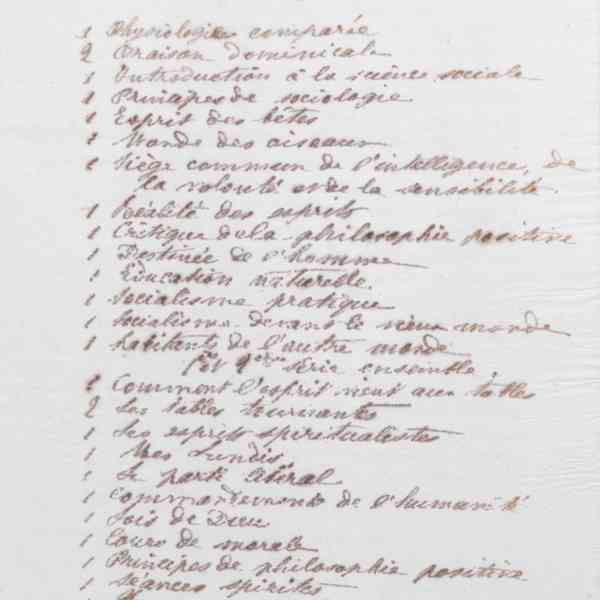 1 Physiologie comparée
2 Oraison dominicale
1 Introduction à la science sociale
1 Principes de sociologie
1 Esprit des bêtes
1 Monde des oiseaux
1 Siège commun de l'intelligence, de
la volonté et de la sensibilité
1 Réalité des esprits
1 Critique de la philosophie positive
1 Destinée de l'homme
1 Education naturelle.
1 Socialisme pratique
1 Socialisme devant le vieux monde
1 Habitants de l'autre monde
1ère et 2ème série ensemble.
1 Comment l'esprit vient aux tables
2 Les tables tournantes
1 Les esprits spiritualistes
1 Mes Lundis
1 Le parti libéral
1 Commandements de l'humanité
1 Lois de Dieu
1 Cours de morale
1 Principes de philosophie positive
1 Séances spirites